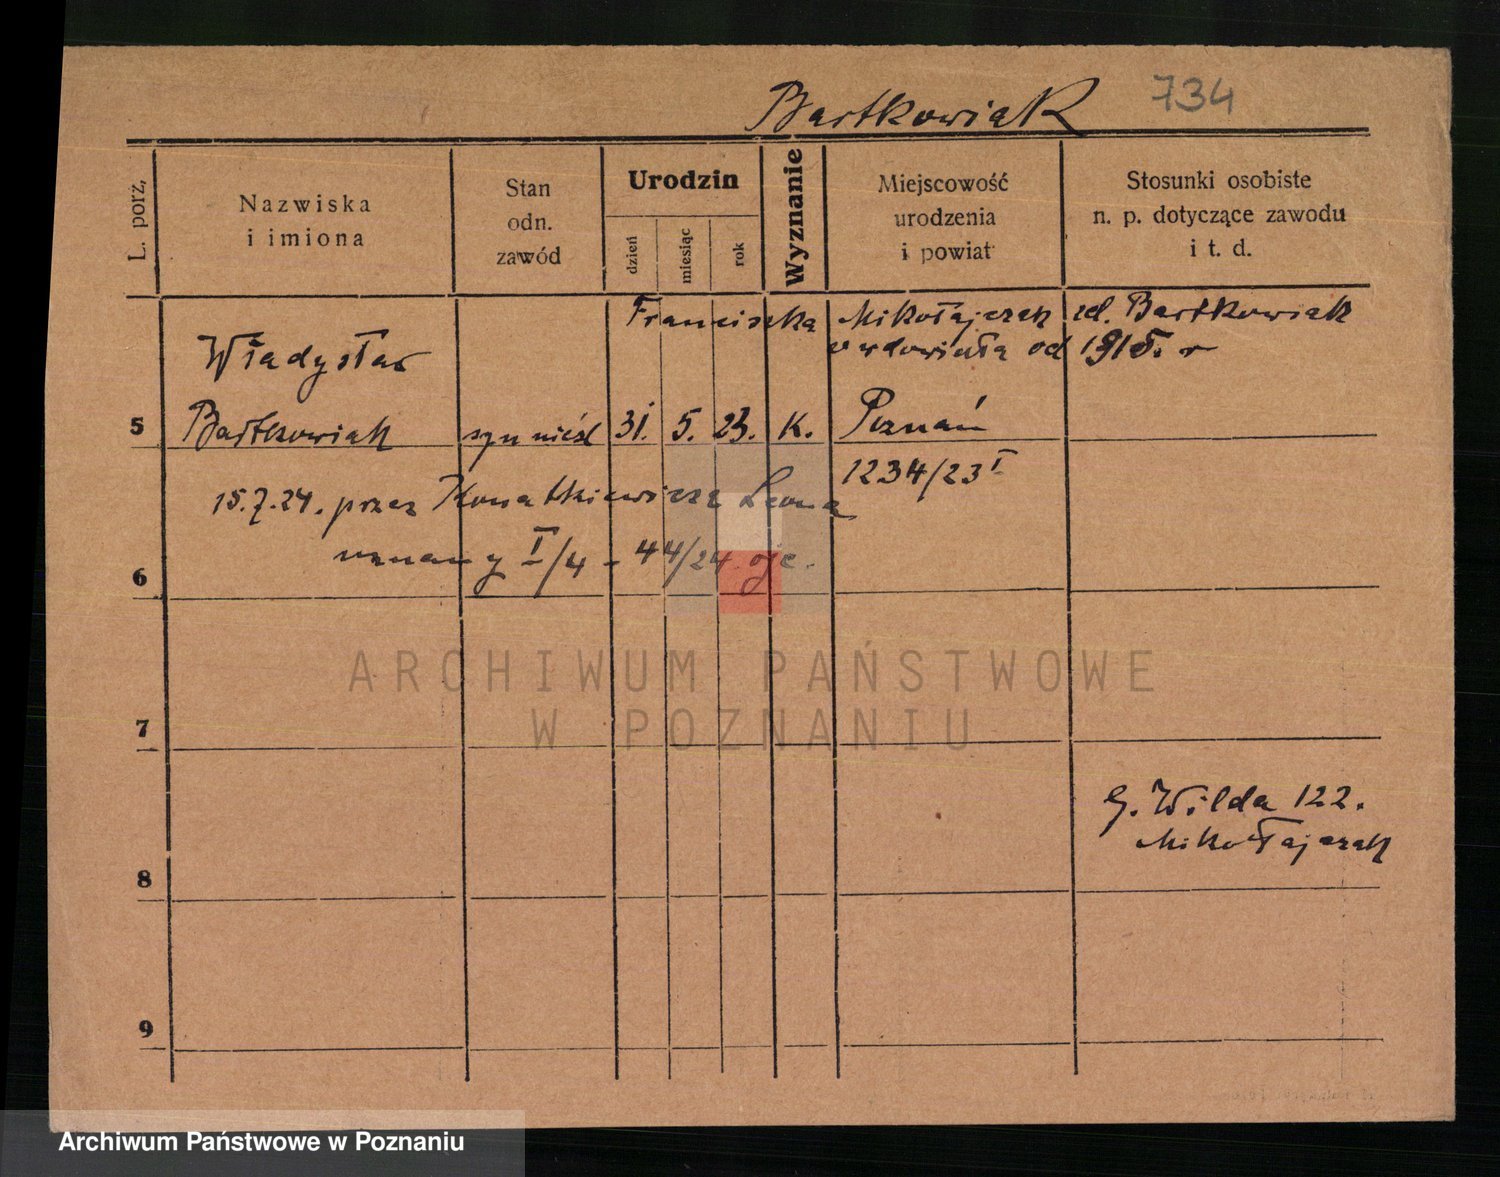 Bartkowiak 734
L. porz,
Nazwiska
i imiona
Stan
odn.
zawód
Urodzin
dzień
miesiąc
rok
Wyznanie
Miejscowość
urodzenia
i powiat
Stosunki osobiste
n. p. dotyczące zawodu
i t. d.
Franciszka Mikołajczak zd. Bartkowiak
owdowiała od 1915. r
Władysław
5 Bartkowiak syn nieśl 31. 5. 23. K. Poznań
1234/23 I
15.7.24. przez Leona
uznany I/4 - 44/24.
6
7
G. Wilda 122.
Mikołajczak
8
9
ARCHIWUM PAŃSTWOWE
W POZNANIU
Archiwum Państwowe w Poznaniu